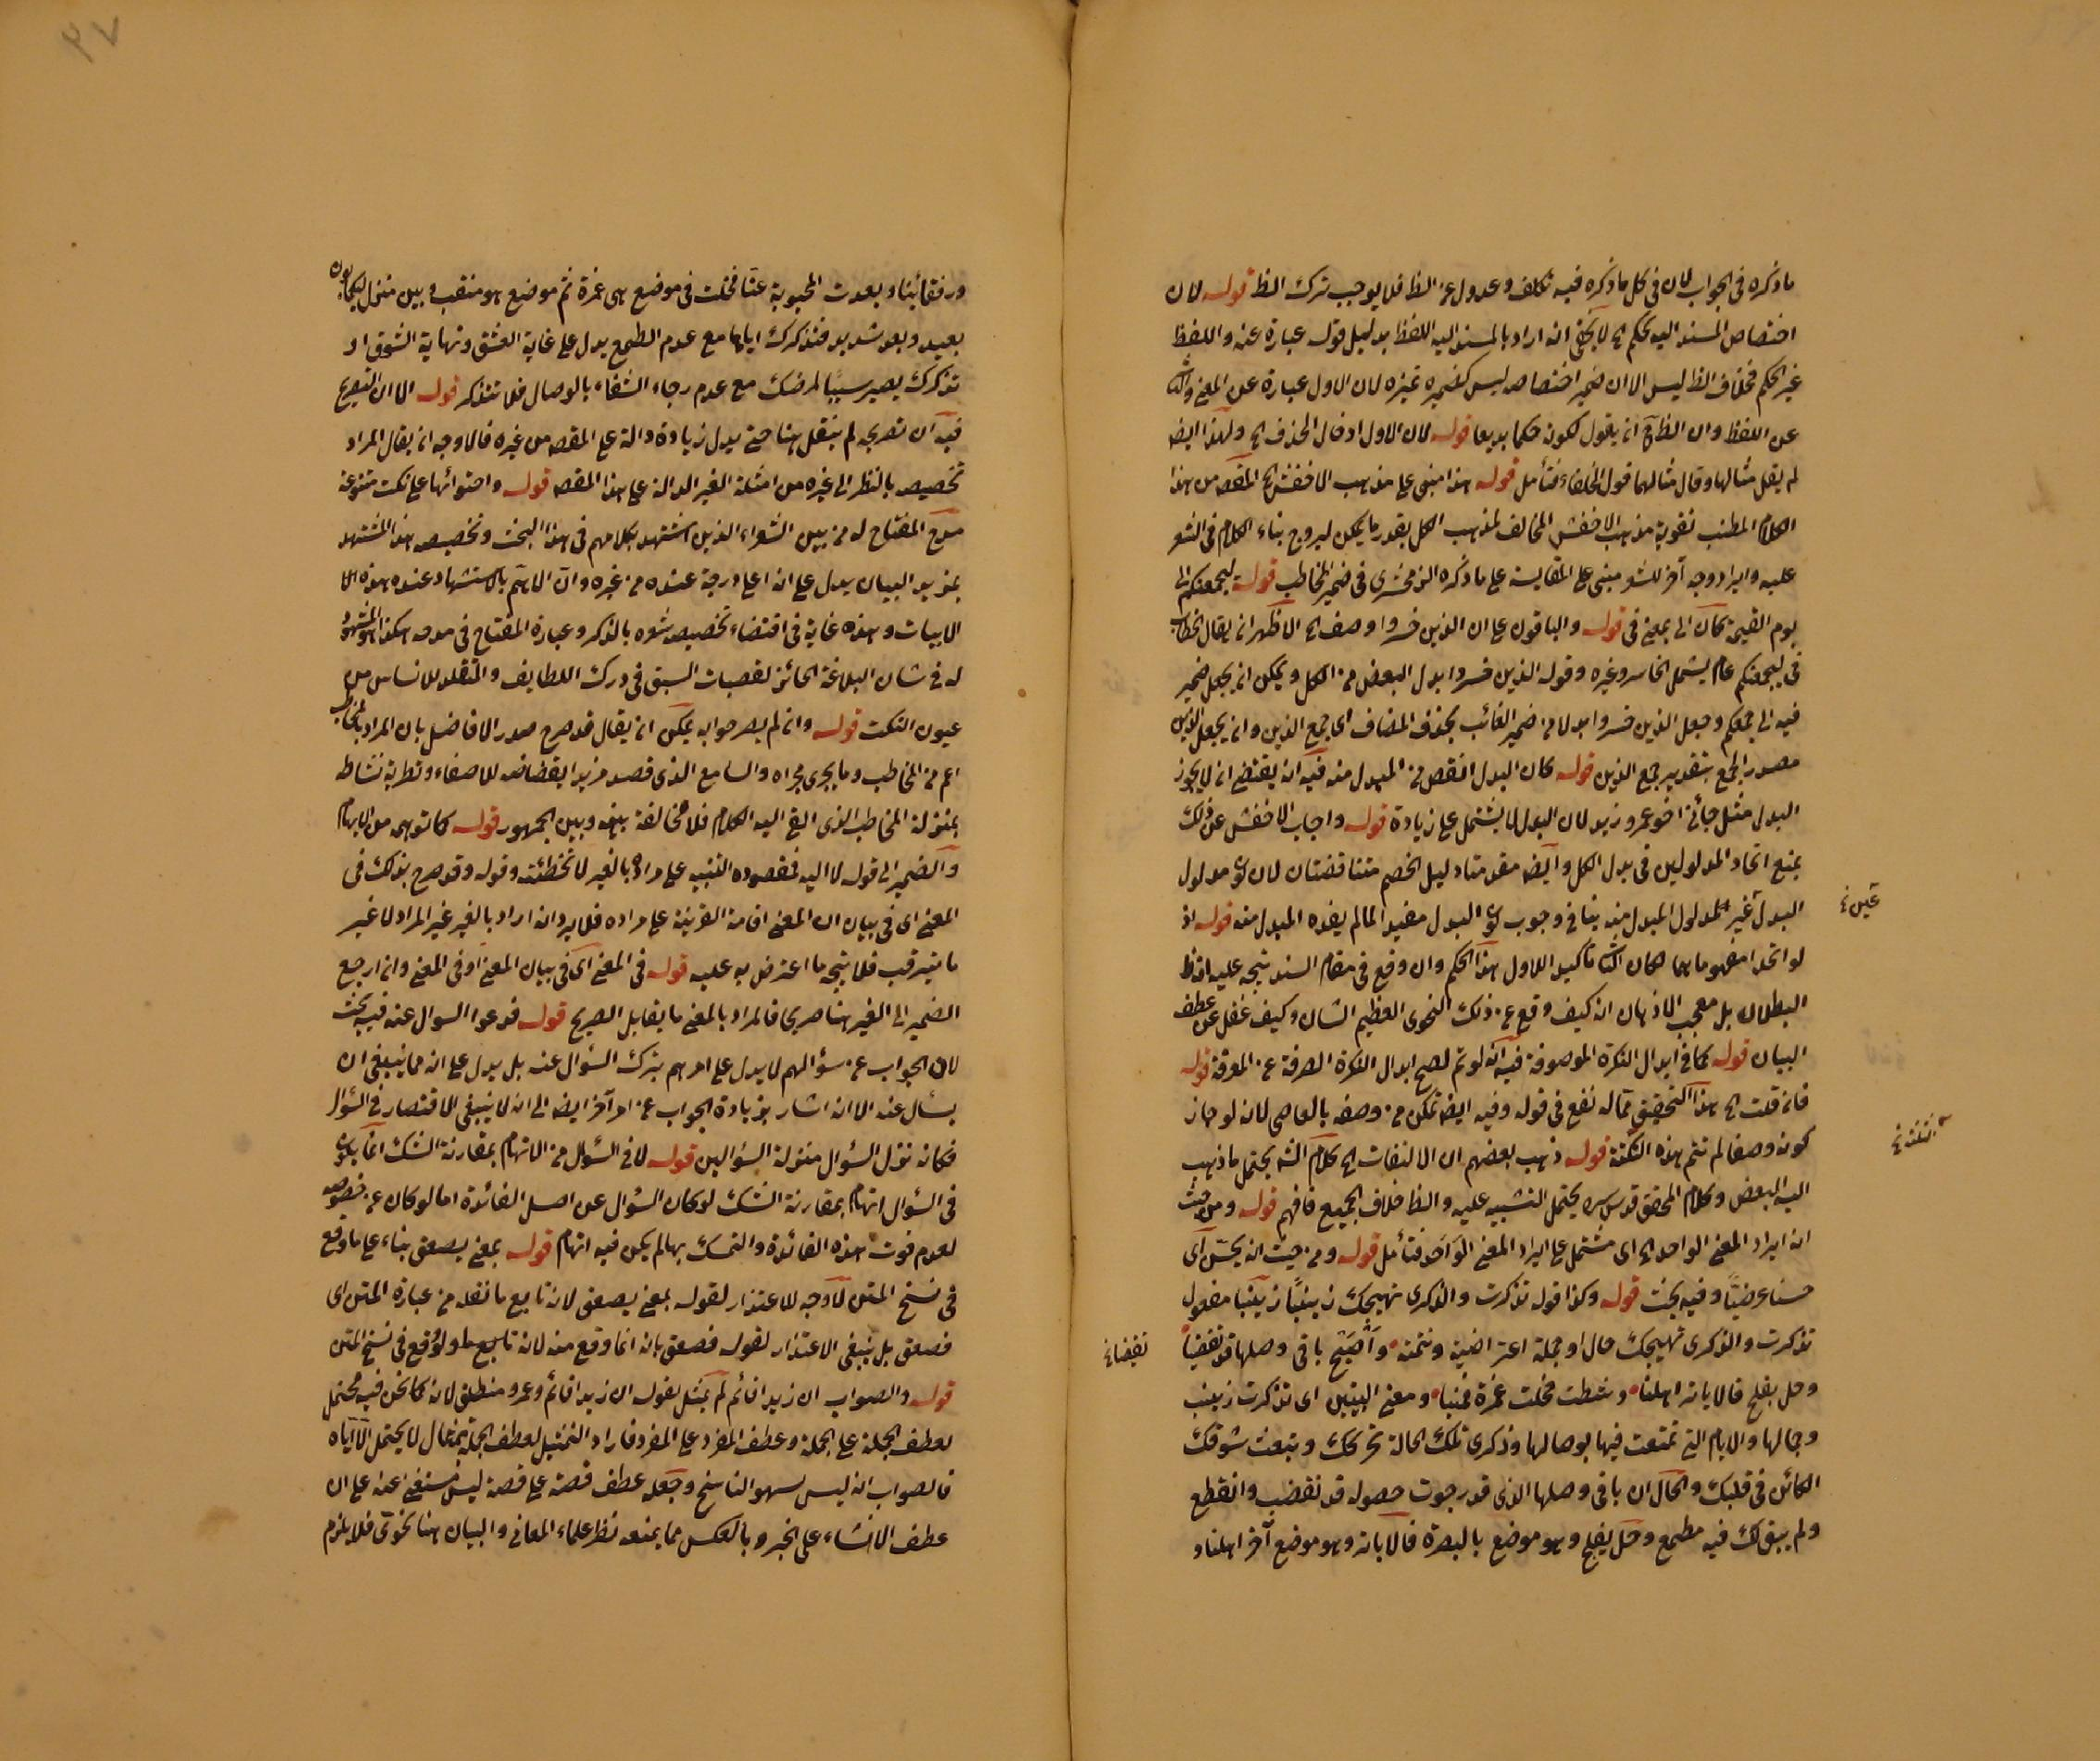 ما ذكره فى الجواب لان فى كل ما ذكره فيه تكلف وعدول عن الظ فلا يوجب ترك الظ قوله لان
اختصاص المسند اليه بحكم الخ لا يخفى انه اراد بالمسند اليه اللفظ بدليل قوله عبارة عنه واللفظ
غير الحكم فخلاف الظ ليس الا ان ضمير اختصاصه ليس كضمير تميزه لان الاول عبارة عن المعنى والثا
عن اللفظ وان الظ ان يقول لكونه حكما بديعا قوله لان الاول ادخال الحذف الخ ولهذا ايضه
لم يقل مثالها وقال مثالهما قول الخلفاء فتأمل قوله هذا مبنى على مذهب الاخفش الخ المقصه من هذا
الكلام المطنب تقوية مذهب الاخفش المخالف لمذهب الكل بقدر ما يمكن ليروج بناء الكلام فى الشعر
عليه وايراد وجه آخر للشعر مبنى على المقايسة على ما ذكره الزمخشرى فى ضمير المخاطب قوله ليجمعنكم الى
يوم القيمة كان الى بمعنى فى قوله والباقون على ان الذين خسروا وصف الخ الاظهر ان يقال الخطاب
فى ليجمعنكم عام يشمل الخاسر وغيره وقوله الذين خسروا بدل البعض من الكل ويمكن ان يجعل ضمير
فيه الى جمعكم وجعل الذين خسروا بدلا من ضمير الغائب بحذف المضاف اى جمع الذين وان يجعل الذين
مصدر الجمع بتقدير جمع الذين قوله كان البدل انقص من المبدل منه فيه انه يقتضى ان لا يجوز
البدل مثل جائنى اخو عمرو زيد لان البدل لا يشتمل على زيادة قوله واجاب الاخفش عن ذلك
بمنع اتحاد المدلولين فى بدل الكل وايضه مقدمتا دليل الخصم متناقضتان لان كون مدلول
البدل غير لمدلول المبدل منه ينافى وجوب كون البدل مفيدا لما لم يفده المبدل منه قوله اذ
لو اتحد مفهوماهما لكان الثا تأكيدا للاول هذا الحكم وان وقع فى مقام السند يتجه عليه انه ظ
البطلان بل معجب الاذهان انه كيف وقع عن ذلك النحوى العظيم الشان وكيف غفل عن عطف
البيان قوله كما فى ابدال النكرة الموصوفة فيه انه لو تم لصح ابدال النكرة الصرفة عن المعرفة قوله
فان قلت الخ هذا التحقيق مما له نفع فى قوله وفيه ايضه تمكن من وصفه بالعاصى لانه لو جاز
كونه وصفا لم تتم هذه النكتة قوله ذهب بعضهم ان الالتفات الخ كلام الشه يحتمل ما ذهب
اليه البعض وكلام المحقق قدس سره يحتمل التنبيه عليه والظ خلاف الجميع فافهم قوله ومن حيث
انه ايراد المعنى الواحد الخ اى مشتمل على ايراد المعنى الواحد فتأمل قوله ومن حيث انه يحسن اى
حسنا عرضيا وفيه بحث قوله وكذا قوله تذكرت والذكرى تهيجك زينبا زينبا مفعول
تذكرت والذكرى تهيجك حال او جملة اعتراضية وتتمته واصبح باقى وصلها قد تقضبا
وحل بفلج فالاباتر اهلنا وشطت فحلت غمرة فمثقبا ومعنى البيتين اى تذكرت زينب
وجمالها والايام التى تمتعت فيها بوصالها وذكرى تلك الحالة تحركك وتبعث شوقك
الكائن فى قلبك والحال ان باقى وصلها الذى قد رجوت حصوله قد تقضب وانقطع
ولم يبق لك فيه مطمع وحل بفلج وهو موضع بالبصرة فالاباتر وهو موضع آخر اهلنا و
تقضبا
ورفقائنا وبعدت المحبوبة عنا فحلت فى موضع هى غمرة ثم موضع هو مثقب وبين منزل
بعيد وبعد شديد فتذكرك اياها مع عدم الطمع يدل على غاية العشق ونهاية الشوق او
تذكرك يصير سببا لمرضك مع عدم رجاء الشفاء بالوصال فلا تتذكر قوله الا ان التصريح
فيه ان تصريحه لم ينقل هنا حتى يدل زيادة دالة على المقصه من غيره فالاوجه ان يقال المراد
تخصيصه بالنظر الى غيره من امثلة الغير الدالة على هذا المقصه قوله واحتوائها على نكت متنوعة
مدح المفتاح له من بين الشعراء الذين استشهد بكلامهم فى هذا البحث وتخصيصه هذا المستشهد
بمزيد البيان يدل على انه اعلى درجة عنده من غيره وان الاهم بالاستشهاد عنده هذه الا
الابيات وهذه غاية فى اقتضاء تخصيص شعره بالذكر وعبارة المفتاح فى مدحه هكذا هو المشهود
له فى شان البلاغة الحائز لقصبات السبق فى درك اللطايف والمفتلذ للاناسى من
عيون النكت قوله وانه لم يصر حوابه يمكن ان يقال قد صرح صدر الافاضل بان المراد بالمخاطب
اعم من المخاطب وما يجرى مجراه والسامع الذى قصد مزيد ايقاظه للاصغاء وتطرية نشاطه
بمنزلة المخاطب الذى القى اليه الكلام فلا مخالفة بينه وبين الجمهور قوله كما توهم من الابهام
والضمير الى قوله لا اليه فمقصوده التنبيه على مراده بالغير لا تخطئته وقوله وقد صرح بذلك فى
المعنى اى فى بيان ان المعنى اقامة القرينة على مراده فلا يرد انه اراد بالغير غير المراد لا غير
ما يترقب فلا يتجه ما اعترض به عليه قوله فى المعنى اى فى بيان المعنى او فى المعنى وان ارجع
الضمير الى الغير هنا صريحا فالمراد بالمعنى ما يقابل الصريح قوله فدعوا السوال عنه فيه بحث
لان الجواب عن سؤالهم لا يدل على امرهم بترك السؤال عنه بل يدل على انه مما ينبغى ان
يسأل عنه الا انه اشار بزيادة الجواب عن امر آخر ايضه الى انه لا ينبغى الاقتصار فى السؤال
فكانه نزل السؤال منزلة السؤالين قوله لا فى السؤال من الاتهام بمقارنة الشك انما يكون
فى السؤال اتهام بمقارنة الشك لو كان السؤال عن اصل الفائدة اما لو كان عن خصوصه
لعدم فوت هذه الفائدة والتمسك بها لم يكن فيه اتهام قوله بمعنى يصعق بناء على ما وقع
فى نسخ المتن لا وجه للاعتذار لقوله بمعنى يصعق لانه تابع ما نقله من عبارة المتن اى
فصعق بل ينبغى الاعتذار لقوله فصعق بانه انما وقع منه لانه تابع ط ولو وقع فى نسخ المتن
قوله والصواب ان زيدا قائم لم يمثل بقوله ان زيدا قائم وعمرو منطلق لانه كما نحن فيه محتمل
لعطف الجملة على الجملة وعطف المفرد على المفرد فاراد التمثيل لعطف الجملة بمثال لا يحتمل الا اياه
فالصواب انه ليس لسهو الناسخ وجعله عطف قصة على قصة ليس مستغنى عنه على ان
عطف الانشاء على الخبر وبالعكس مما يمنعه نظر علماء المعانى والبيان هنا نحوى فلا يلزم